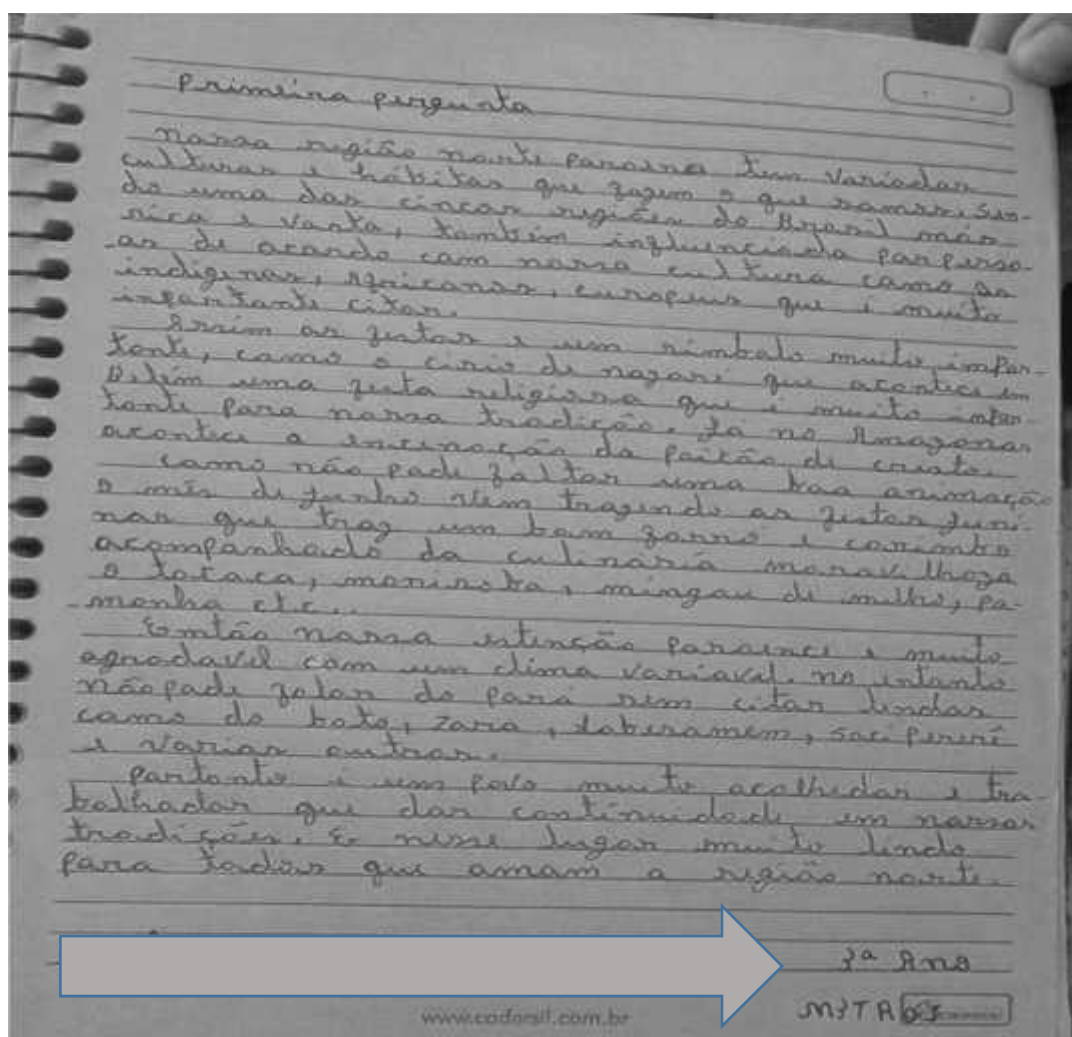 Primeira pergunta
Nossa região norte paraense tem variadas
culturas e hábitos que fazem o que somos, sen-
do uma das cincos regiões do Brasil mas
rica e vasta, também influenciada por perso-
as de acordo com nossa cultura como os
indigenas, Africanos, europeus que é muito
importante citar.
Assim as festas e um simbolo muito impor-
tante, como o cirio de nazaré que acontece em
Belém uma festa religiosa que é muito impor-
tante para nossa tradição. Já no Amazonas
acontece a encenação da paixão de cristo.
Como não pode faltar uma boa animação
o mês de junho vem trazendo as festas juni-
nas que traz um bom forró e carimbo
acompanhado da culinária maravilhoza
o tacaca, manisoba, mingau de milho, pa-
monha etc..
Então nossa estenção paraence e muito
agradavél com um clima variavél. no entanto
não pode falar do pará sem citar lendas
como do boto, Iara, lobisomem, saci pererê
e varias outras.
portanto é um povo muito acolhedor e tra-
balhador que dar continuidade em nossas
tradições. E nesse lugar muito lindo
para todos que amam a região norte.
3ª Ano
M3TR03
www.cadersil.com.br